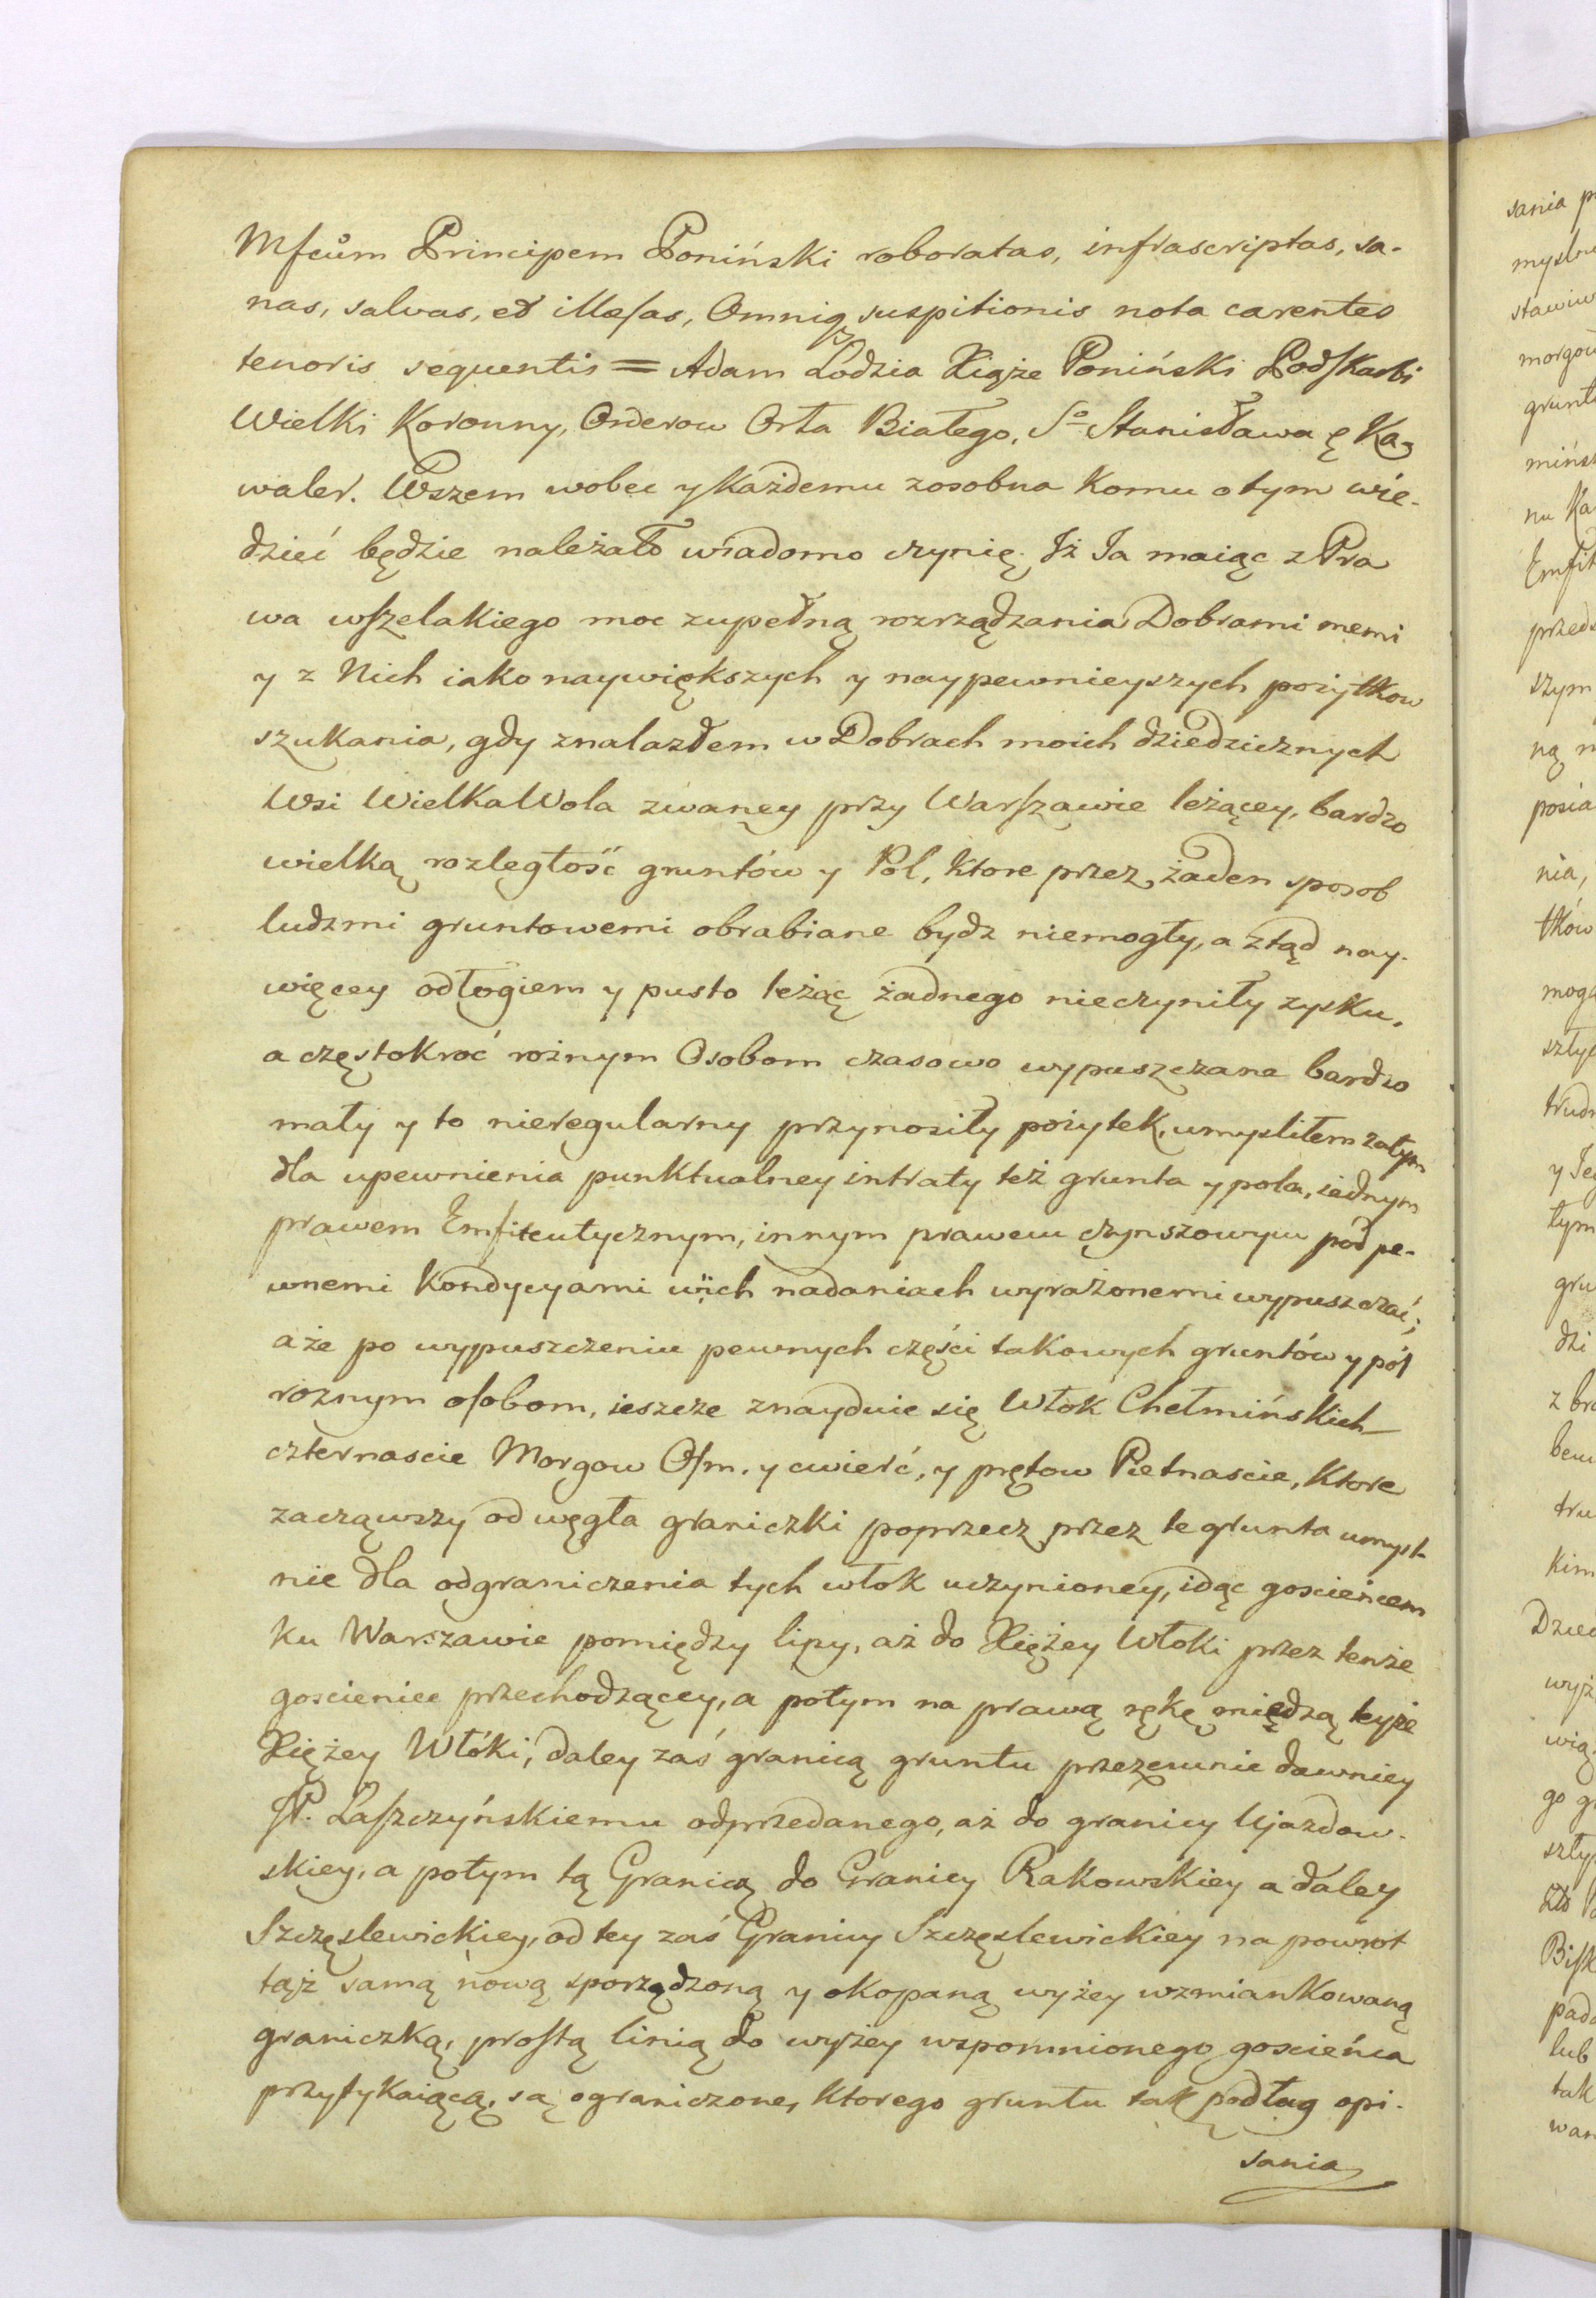 Mfcum Principem Poniński roboratas, infrascriptas, sa-
nas, salvas, et illæsas, Omniq suspitionis nota carentes
tenoris sequentis = Adam Łodzia Xiąże Poniński Podskarbi
Wielki Koronny, Orderow Orła Białego, So Stanisława Ka-
waler. Wszem wobec y Każdemu zosobna Komu o tym wie-
dzieć będzie należało wiadomo czynię. Iż Ia maiąc z Pra
wa wszelakiego moc zupełną rozrządzania Dobrami memi
y z Nich iako naywiększych y naypewnieyszych pożytkow
szukania, gdy znalazłem w Dobrach moich dziedzicznych
Wsi Wielka Wola zwaney przy Warszawie leżącey, bardzo
wielką rozległość gruntów y Pol, ktore przez żaden sposob
ludzmi gruntowemi obrabiane bydz niemogły, a ztąd nay-
więcey odłogiem y pusto leżąc żadnego nieczyniły zysku,
a częstokroć rożnym Osobom czasowo wypuszczane bardzo
mały y to nieregularny przynosiły pożytek, umyśliłem zatym
dla upewnienia punktualney intraty też grunta y pola, iednym
prawem Emfiteutycznym, innym prawem czynszowym pod pe-
wnemi Kondycyami w ich nadaniach wyrażonemi wypuszczać;
a że po wypuszczeniu pewnych części takowych gruntów y pól
roznym osobom, ieszcze znayduie się Włok Chełmińskich
czternascie Morgow Osm. y cwierć, y prętow Pietnascie, Ktore
zacząwszy od węgła graniczki poprzecz przez te grunta umyśl-
nie dla odgraniczenia tych włok uczynioney, idąc gościeńcem
ku Warszawie pomiędzy lipy, aż do Xiężey Włoki przez tenże
goscieniec przechodzącey, a potym na prawą rękę miedzą teyże
Xiężey Włóki, daley zaś granicą gruntu przezemnie dawniey
JP. Łaszczyńskiemu odprzedanego, aż do granicy Ujazdow-
skiey, a potym tą Granicą do Granicy Rakowskiey a daley
Szczęslewickiey, od tey zaś Granicy Szczęslewickiey na powrot
tąż samą nową sporządzoną y okopaną wyżey wzmiankowaną
graniczką, prostą linią do wyżey wspomnionego gościeńca
przytykaiącą, są ograniczone, Ktorego gruntu tak podług opi-
sania